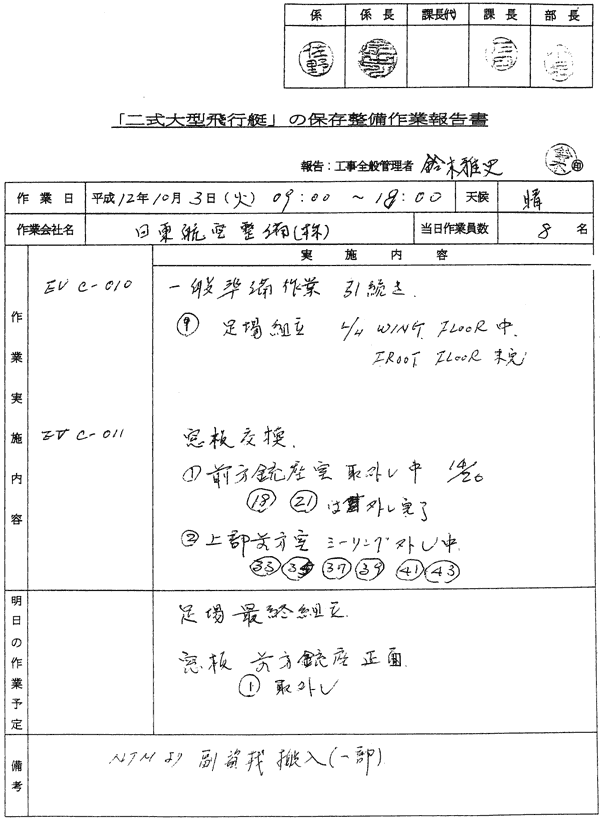 係 係長 課長代 課長 部長
佐野
「二式大型飛行艇」の保存整備作業報告書
報告：工事全般管理者 鈴木雅史 印
作業日 平成12年10月3日(火) 09:00 ～18:00 天候 晴
作業会社名 日東航空整備(株) 当日作業員数 8 名
作業実施内容
実施内容
EV C-010 一般準備作業 引続き.
⑨ 足場組立 L/H WING FLOOR 中.
FROOT FLOOR 未完
EV C-011 窓板交換.
① 前方銃座窓 取外し中 14/20
⑱ ㉑ は 外し完了
② 上部前方窓 シーリング外し中.
㉝ ㊲ ㊴ ㊶ ㊸
明日の作業予定
足場最終組立.
窓板 前方銃座正面.
① 取外し
備考
NTMより 副資材搬入(一部)